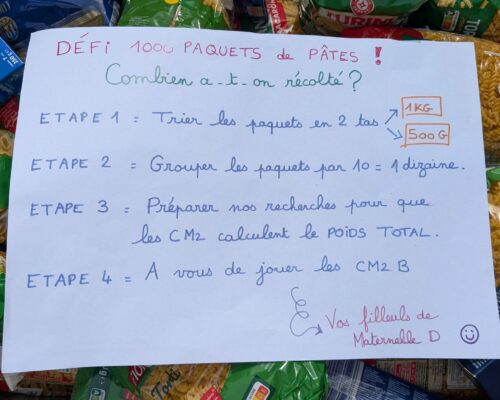 TURINI
DÉFI 1000 PAQUETS de PÂTES !
Combien a-t-on récolté ?
ETAPE 1 = Trier les paquets en 2 tas
1KG
500G
ETAPE 2 = Grouper les paquets par 10 = 1 dizaine.
ETAPE 3 = Préparer nos recherches pour que
les CM2 calculent le POIDS TOTAL.
ETAPE 4 = A vous de jouer les CM2 B
Vos filleuls de
Maternelle D
Torti